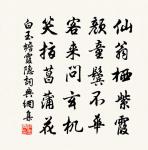 仙翁栖紫霞
颜童鬓不华
客来问玄机
笑指菖蒲花
白玉蟾霞隐词典网集